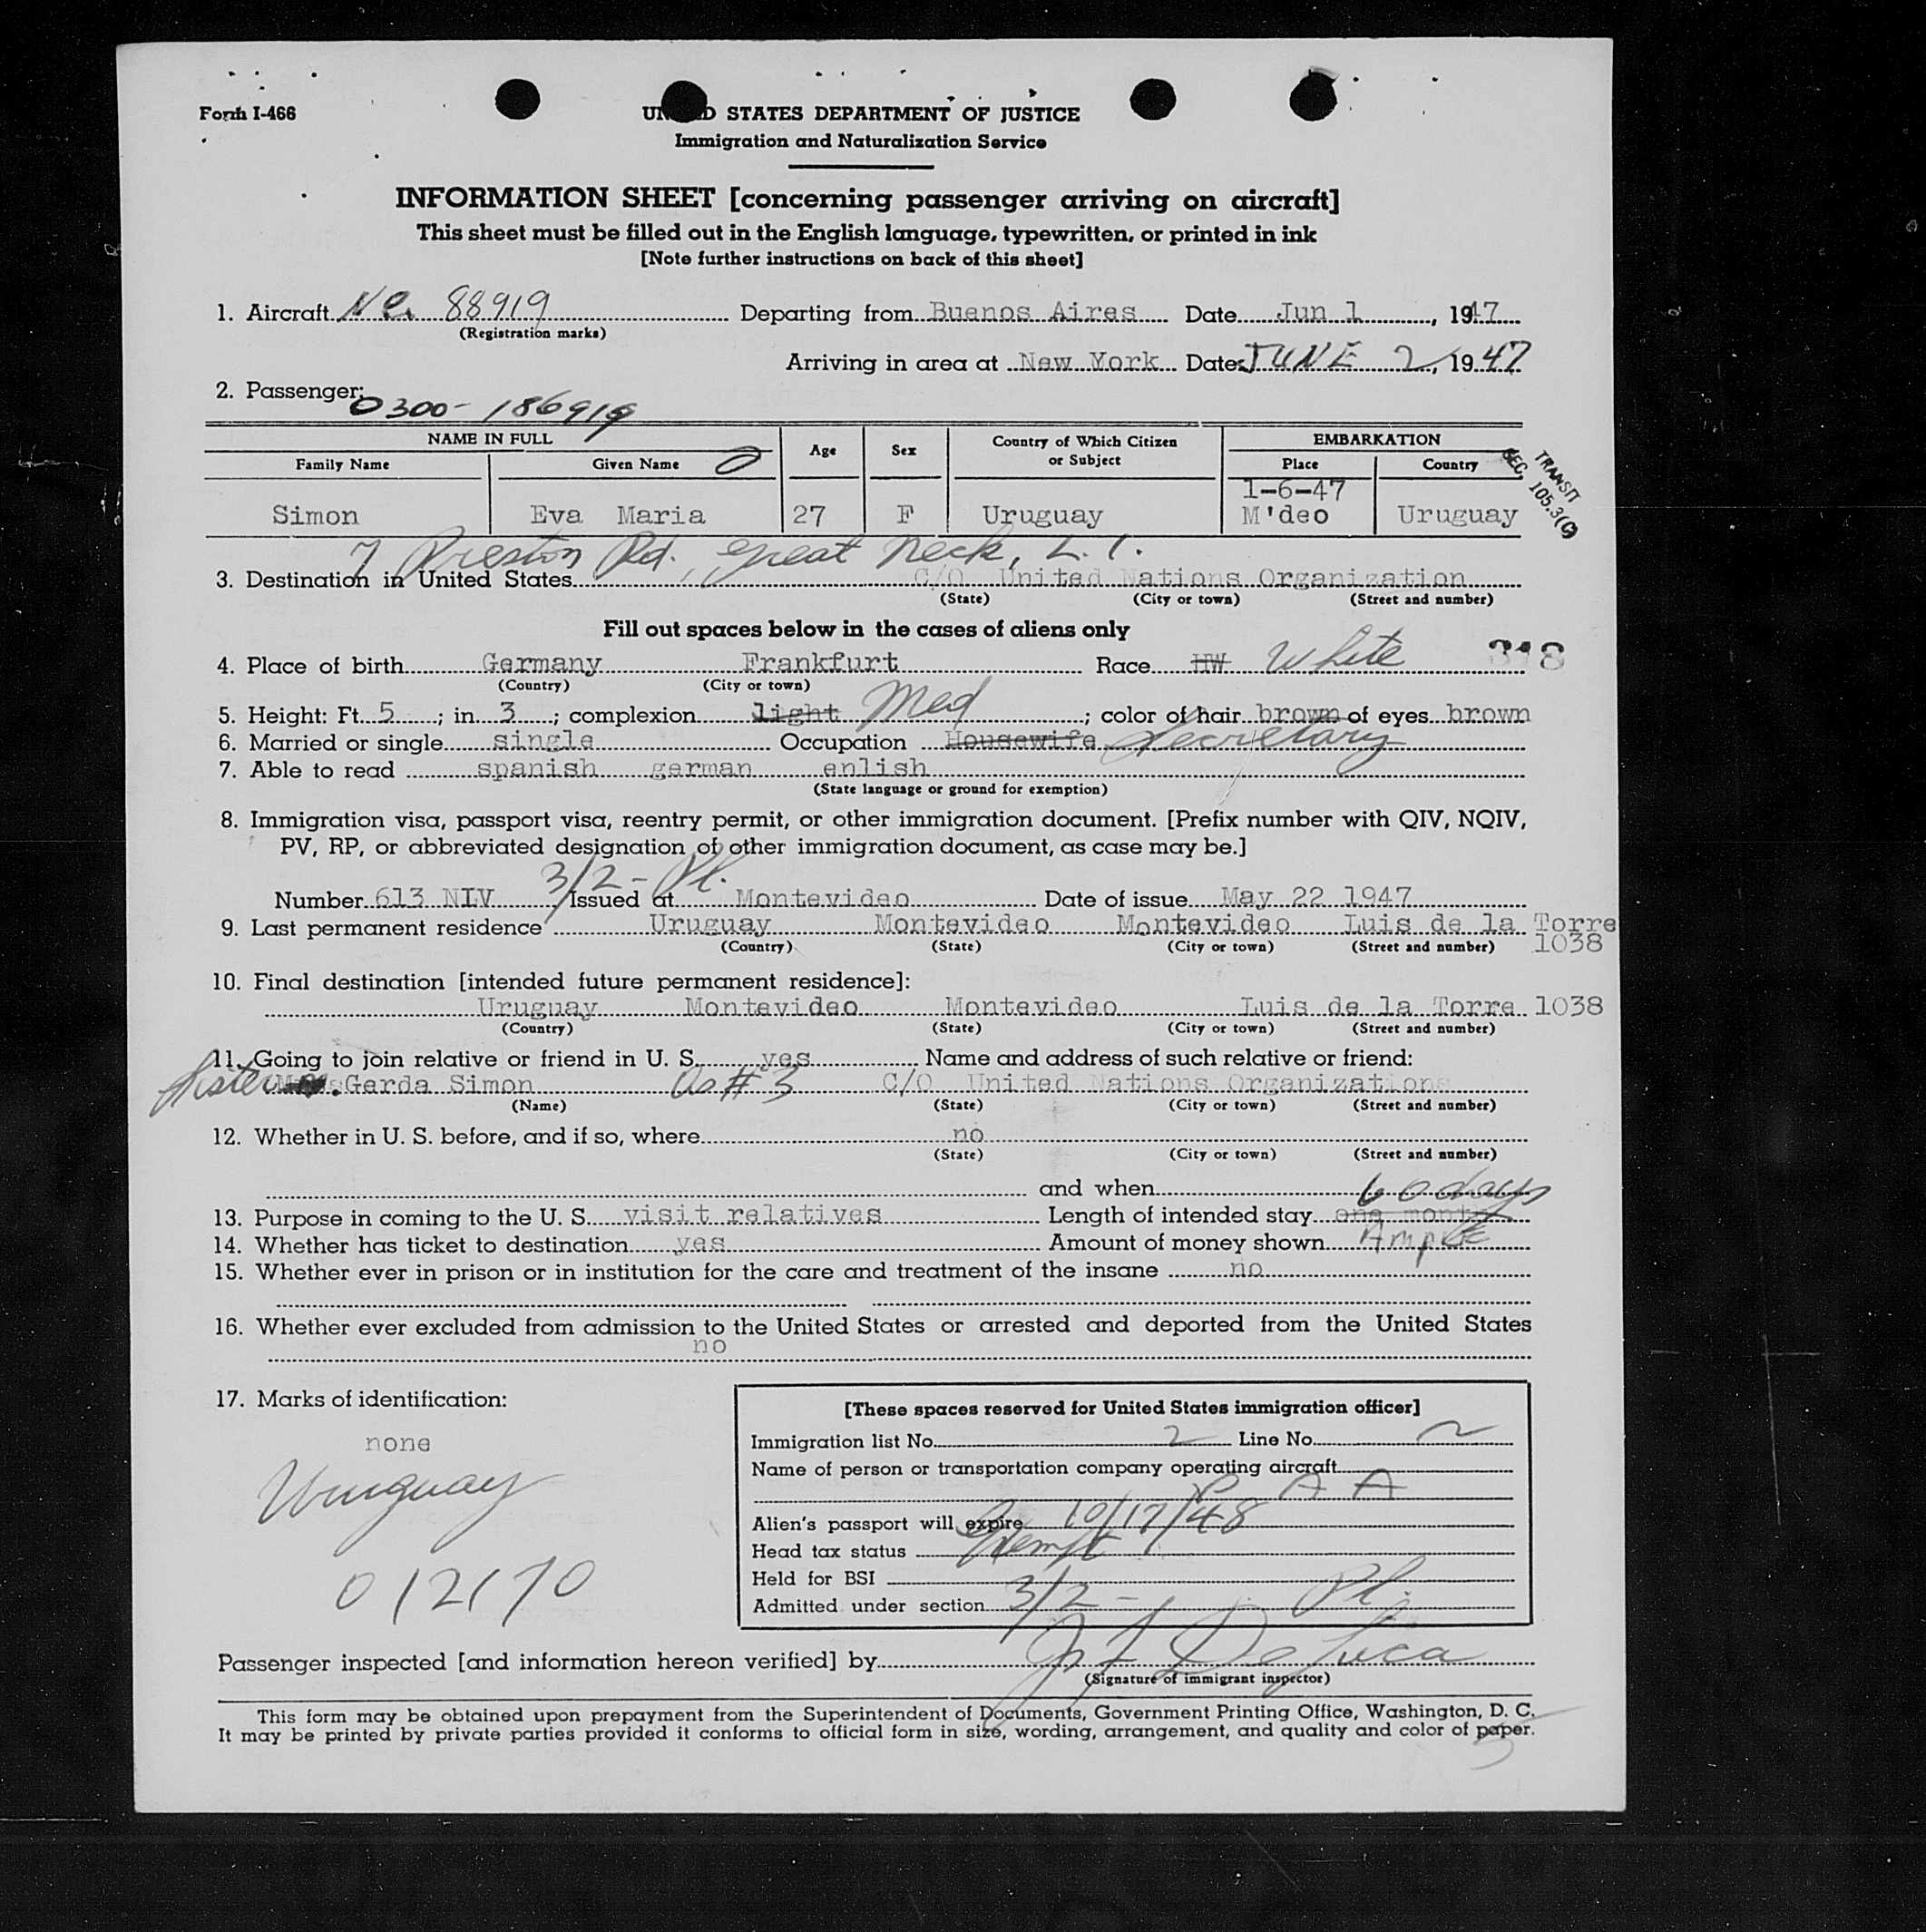 Form I-466
UNITED STATES DEPARTMENT OF JUSTICE
Immigration and Naturalization Service
INFORMATION SHEET [concerning passenger arriving on aircraft]
This sheet must be filled out in the English language, typewritten, or printed in ink
[Note further instructions on back of this sheet]
1. Aircraft Nc. 88919 Departing from Buenos Aires Date Jun 1, 1947
(Registration marks)
Arriving in area at New York Date JUNE 2, 1947
2. Passenger:
0300-186919
NAME IN FULL Age Sex Country of Which Citizen or Subject EMBARKATION
Family Name Given Name Place Country
TRANSIT
SEC. 105.3(C)
1-6-47
Simon Eva Maria 27 F Uruguay M'deo Uruguay
7 Preston Rd., Great Neck, L. I.
3. Destination in United States C/O United Nations Organization
(State) (City or town) (Street and number)
Fill out spaces below in the cases of aliens only
4. Place of birth Germany Frankfurt Race HW White 318
(Country) (City or town)
5. Height: Ft. 5; in. 3; complexion light Med; color of hair brown of eyes brown
6. Married or single single Occupation Housewife Secretary
7. Able to read spanish german enlish
(State language or ground for exemption)
8. Immigration visa, passport visa, reentry permit, or other immigration document. [Prefix number with QIV, NQIV,
PV, RP, or abbreviated designation of other immigration document, as case may be.]
3/2- Pl.
Number 613 NIV Issued at Montevideo Date of issue May 22 1947
9. Last permanent residence Uruguay Montevideo Montevideo Luis de la Torre
(Country) (State) (City or town) (Street and number) 1038
10. Final destination [intended future permanent residence]:
Uruguay Montevideo Montevideo Luis de la Torre 1038
(Country) (State) (City or town) (Street and number)
11. Going to join relative or friend in U. S. yes Name and address of such relative or friend:
Sister Gerda Simon As #3 C/O United Nations Organizations
(Name) (State) (City or town) (Street and number)
12. Whether in U. S. before, and if so, where no
(State) (City or town) (Street and number)
and when
60 days
13. Purpose in coming to the U. S. visit relatives Length of intended stay one month
14. Whether has ticket to destination yes Amount of money shown Ample
15. Whether ever in prison or in institution for the care and treatment of the insane no
16. Whether ever excluded from admission to the United States or arrested and deported from the United States
no
17. Marks of identification:
none
Uruguay
0/2170
[These spaces reserved for United States immigration officer]
Immigration list No. 2 Line No. 2
Name of person or transportation company operating aircraft
P A A
Alien's passport will expire 10/17/48
Head tax status Exempt
Held for BSI
Admitted under section 3/2- Pl.
Passenger inspected [and information hereon verified] by De Luca
(Signature of immigrant inspector)
This form may be obtained upon prepayment from the Superintendent of Documents, Government Printing Office, Washington, D. C.
It may be printed by private parties provided it conforms to official form in size, wording, arrangement, and quality and color of paper.